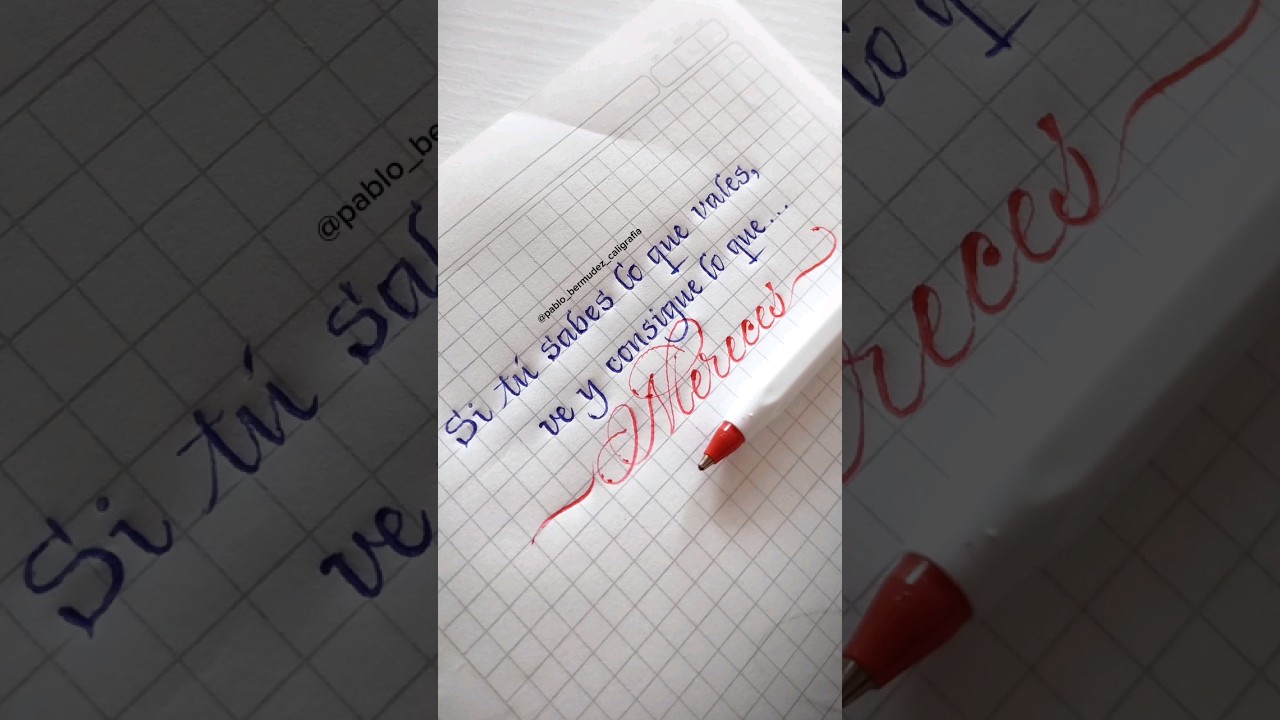 Si tú sabes lo que vales,
@pablo_bermudez_caligrafia
ve y consigue lo que...
Mereces